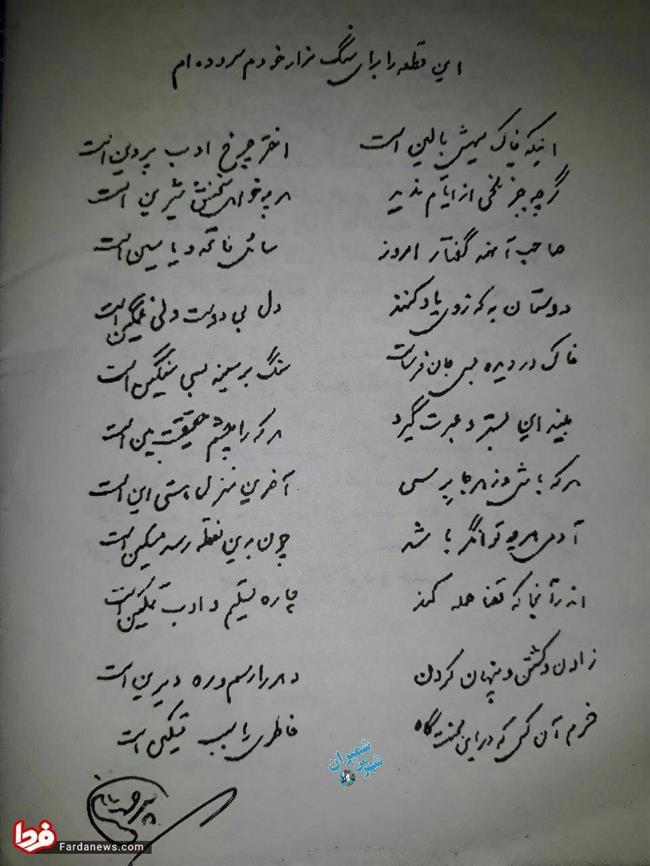 این قطعه را برای سنگ مزار خودم سروده ام
اینکه خاک سیهش بالین است اختر چرخ ادب پروین است
گرچه جز تلخی از ایام ندید هر چه خواهی سخنش شیرین است
صاحب آنهمه گفتار امروز سائل فاتحه و یاسین است
دوستان به که ز وی یاد کنند دل بی دوست دلی غمگین است
خاک در دیده بسی جان فرساست سنگ بر سینه بسی سنگین است
بیند این بستر و عبرت گیرد هر که را چشم حقیقت بین است
هر که باشی و ز هر جا برسی آخرین منزل هستی این است
آدمی هر چه توانگر باشد چون برین نقطه رسد مسکین است
اندر آنجا که قضا حمله کند چاره تسلیم و ادب تمکین است
زادن و کشتن و پنهان کردن دهر را رسم و ره دیرین است
خرم آن کس که در این محنت گاه خاطری را سبب تسکین است
شهروند شمیران
فردا
Fardanews.com